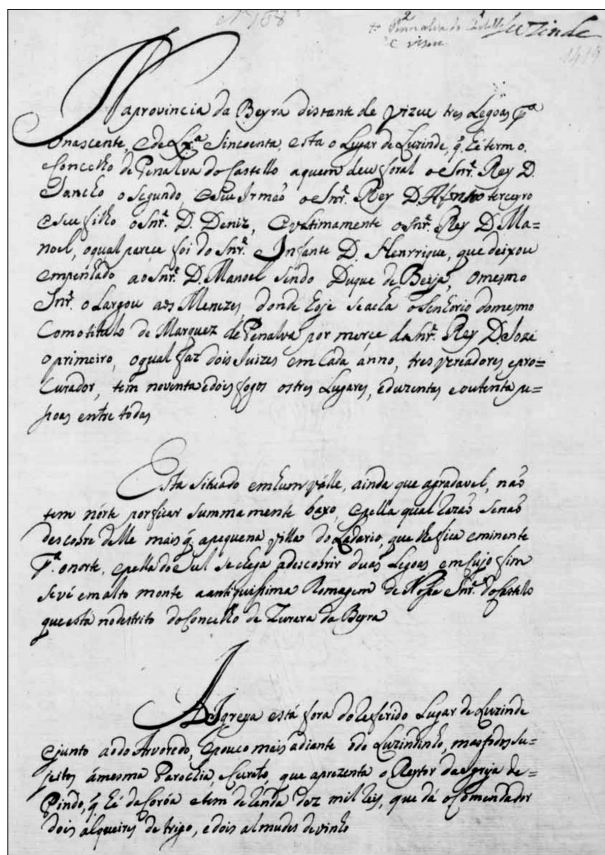 Nº 168
Luzinde
1419
Na provincia da Beyra distante de Vizeu tres Legoas pª
o nascente, e de Lxª sincoenta, esta o Lugar de Luzinde, q̃ hé termo, e
Concelho de Penalva do Castello aquem deu foral o Snr. Rey D.
Sancho o segundo, e seu Irmaõ o Snr. Rey D. Afonso terceyro
e seu filho o Snr. D. Deniz, e ultimamente o Snr. Rey D. Ma=
noel, o qual parece foi do Snr. Infante D. Henrrique, que deixou
empenhado ao Snr. D. Manoel sindo Duque de Beyja, o mesmo
Snr. o Largou aos Menezes, donde hoje se acha o senhorio do mesmo
Com o titulo de Marquez de Penalva por merce do Snr. Rey D. Joze
o primeiro, o qual faz dois Juizes em Cada anno, tres vereadores, e pro=
Curador, tem noventa e dois fogos os tres Lugares, e duzentas e outenta pe=
ssoas entre todas
Esta situado em hum válle, ainda que agradavel, naõ
tem nórte por ficar summamente baxo, e pella qual razaõ senaõ
descobre delle mais q̃ a pequena villa do Ladario, que lhe fica eminente
pª o norte, e pella do sul se chega a descobrir duas Legoas em cujo fim
se vé em alto monte a antiquissima Romagem de Nossa Snrª do Castelo
que esta no destrito do Concelho de Zurara da Beyra
A Igreya está fora do referido Lugar de Luzinde
e junto ao do Arvoredo, e pouco mais adiante o do Luzindinho, mas todos su=
jeitos á mesma Parochia, e Curato, que aprezenta o Reytor da Igrija de=
Pindo, q̃ hé da Coróa e tem de renda dez mil reis, que dá o Comendador
dois alqueires de trigo, e dois almudes de vinho